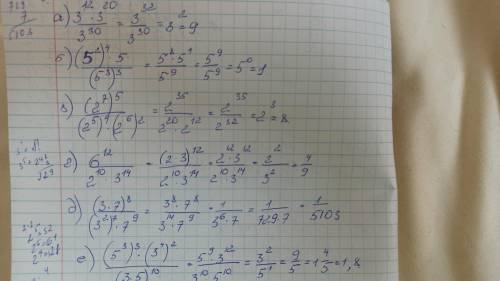 729
7
5103
а) 3^12 · 3^20 / 3^30 = 3^32 / 3^30 = 3^2 = 9
б) (5^2)^4 · 5 / (5^3)^3 = 5^8 · 5^1 / 5^9 = 5^9 / 5^9 = 5^0 = 1
в) (2^7)^5 / (2^5)^4 · (2^6)^2 = 2^35 / 2^20 · 2^12 = 2^35 / 2^32 = 2^3 = 8
г) 6^12 / 2^10 · 3^14 = (2·3)^12 / 2^10 · 3^14 = 2^12 · 3^12 / 2^10 · 3^14 = 2^2 / 3^2 = 4/9
д) (3·7)^8 / (3^2)^7 · 7^9 = 3^8 · 7^8 / 3^14 · 7^9 = 1 / 3^6 · 7 = 1 / 729·7 = 1 / 5103
е) (5^3)^3 · (3^4)^2 / (3·5)^10 = 5^9 · 3^12 / 3^10 · 5^10 = 3^2 / 5^1 = 9/5 = 1 4/5 = 1,8